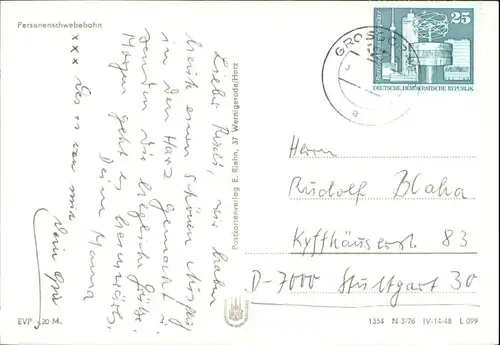 Personenschwebebahn
Lieber Rudi, wir haben
heute einen schönen Ausflug
in den Harz gemacht u.
senden Dir liebe Grüße.
Morgen geht es heimwärts.
Deine Mama
xxx Des is von mir
Dein
EVP -.20 M.
Postkartenverlag E. Riehn, 37 Wernigerode/Harz
25
DEUTSCHE DEMOKRATISCHE REPUBLIK
a
Herrn
Rudolf Blaha
Kyffhäuserst. 83
D-7000 Stuttgart 30
1354 N 3/76 IV-14-48 L 099